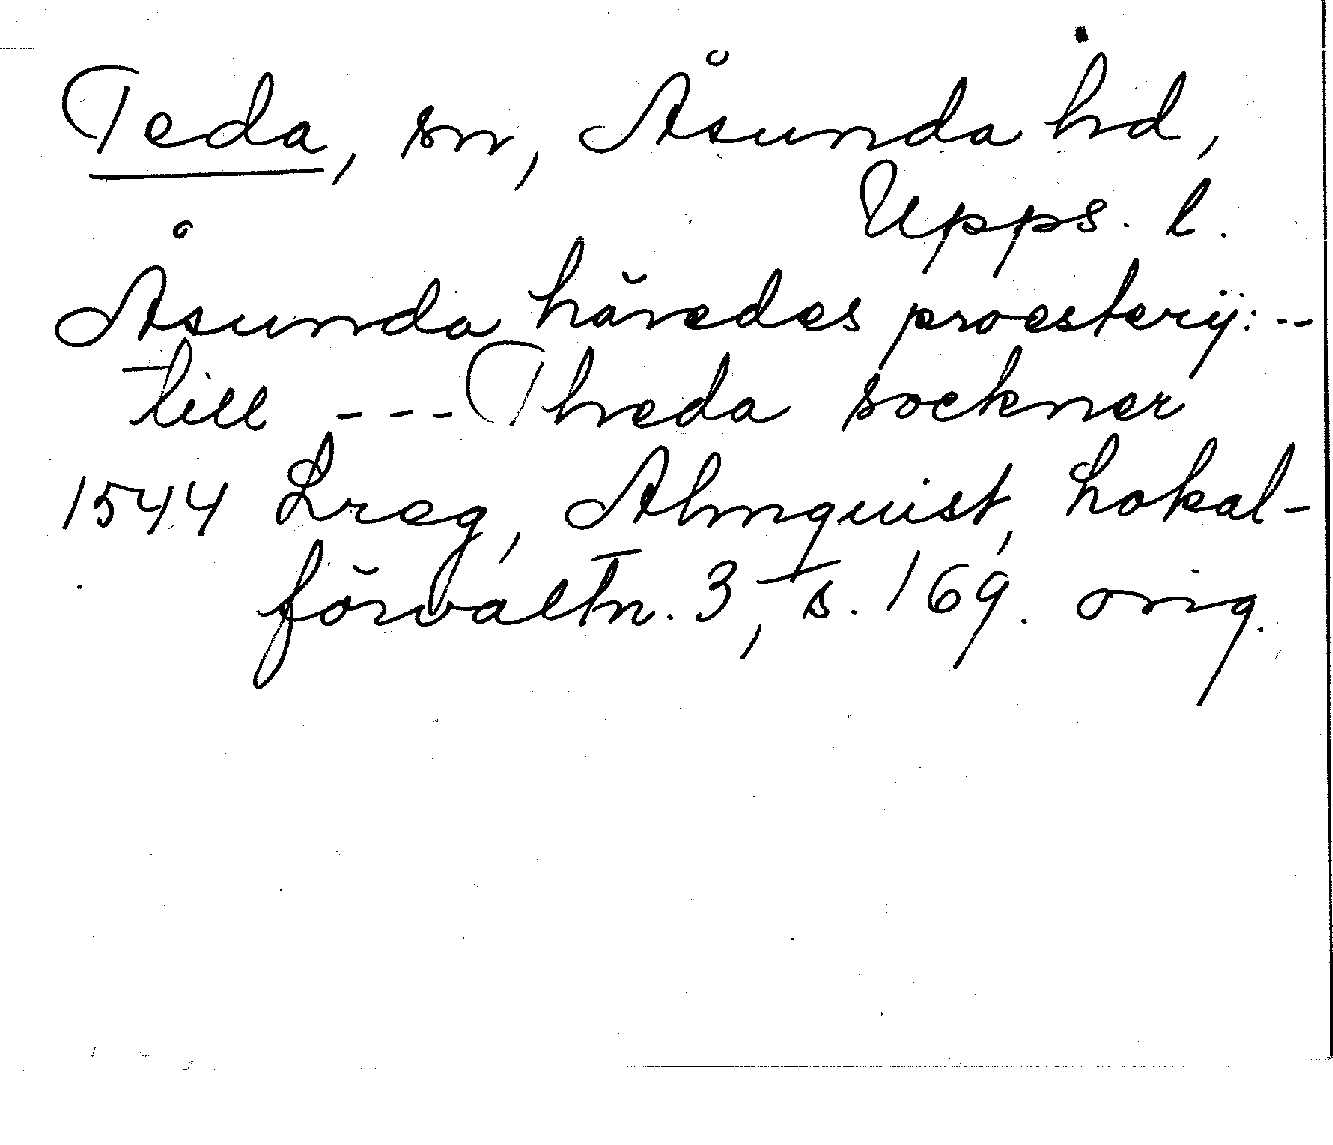 Teda, sn, Åsunda hd,
Upps. l.
Åsunda häredes proesterij: --
till --- Theda sockner
1544 Lreg, Almquist, Lokal-
förvaltn. 3, s. 169. orig.